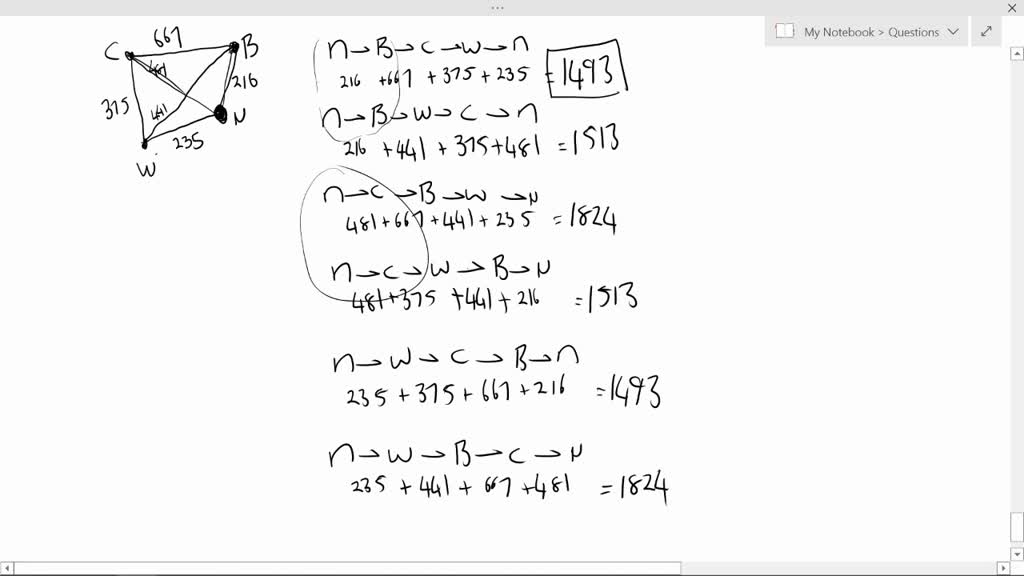 My Notebook > Questions
C 667 B
481
216
375
441
N
235
W
n→B→C→W→n
216 +667 +375+235 =1493
n→B→W→C→n
216 +441 +375+481 =1513
n→C→B→W→N
481+667+441+235 =1824
n→C→W→B→N
481+375 +441+216 =1513
n→W→C→B→n
235+375+667+216 =1493
n→W→B→C→N
235+441+667+481 =1824